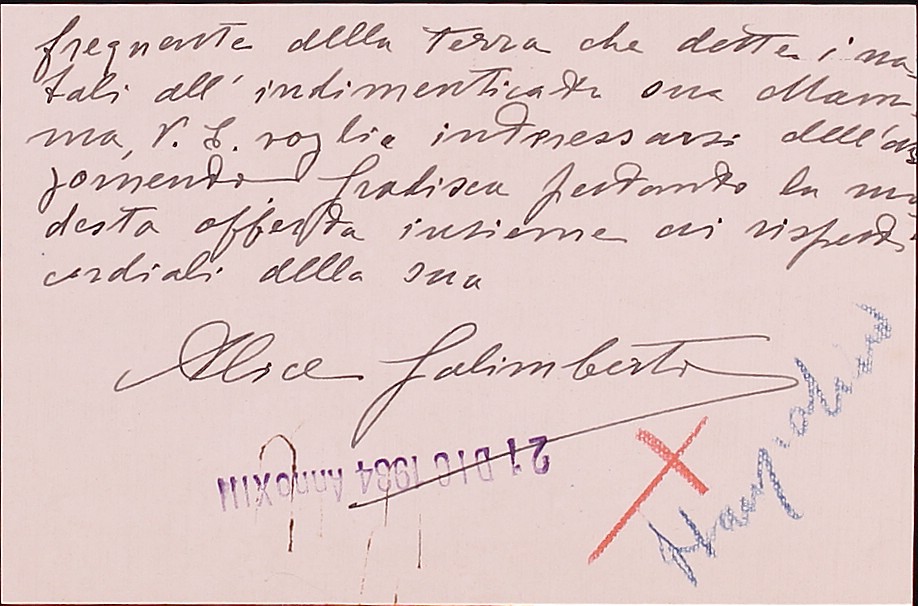 frequente della terra che dette i na-
tali all' indimenticata sua Mam-
ma, V. S. voglia interessarsi dell'ar-
gomento. Gradisca pertanto la mo-
desta offerta insieme ai rispetti
cordiali della sua
Alice Galimberti
21 DIC 1934 Anno XIII